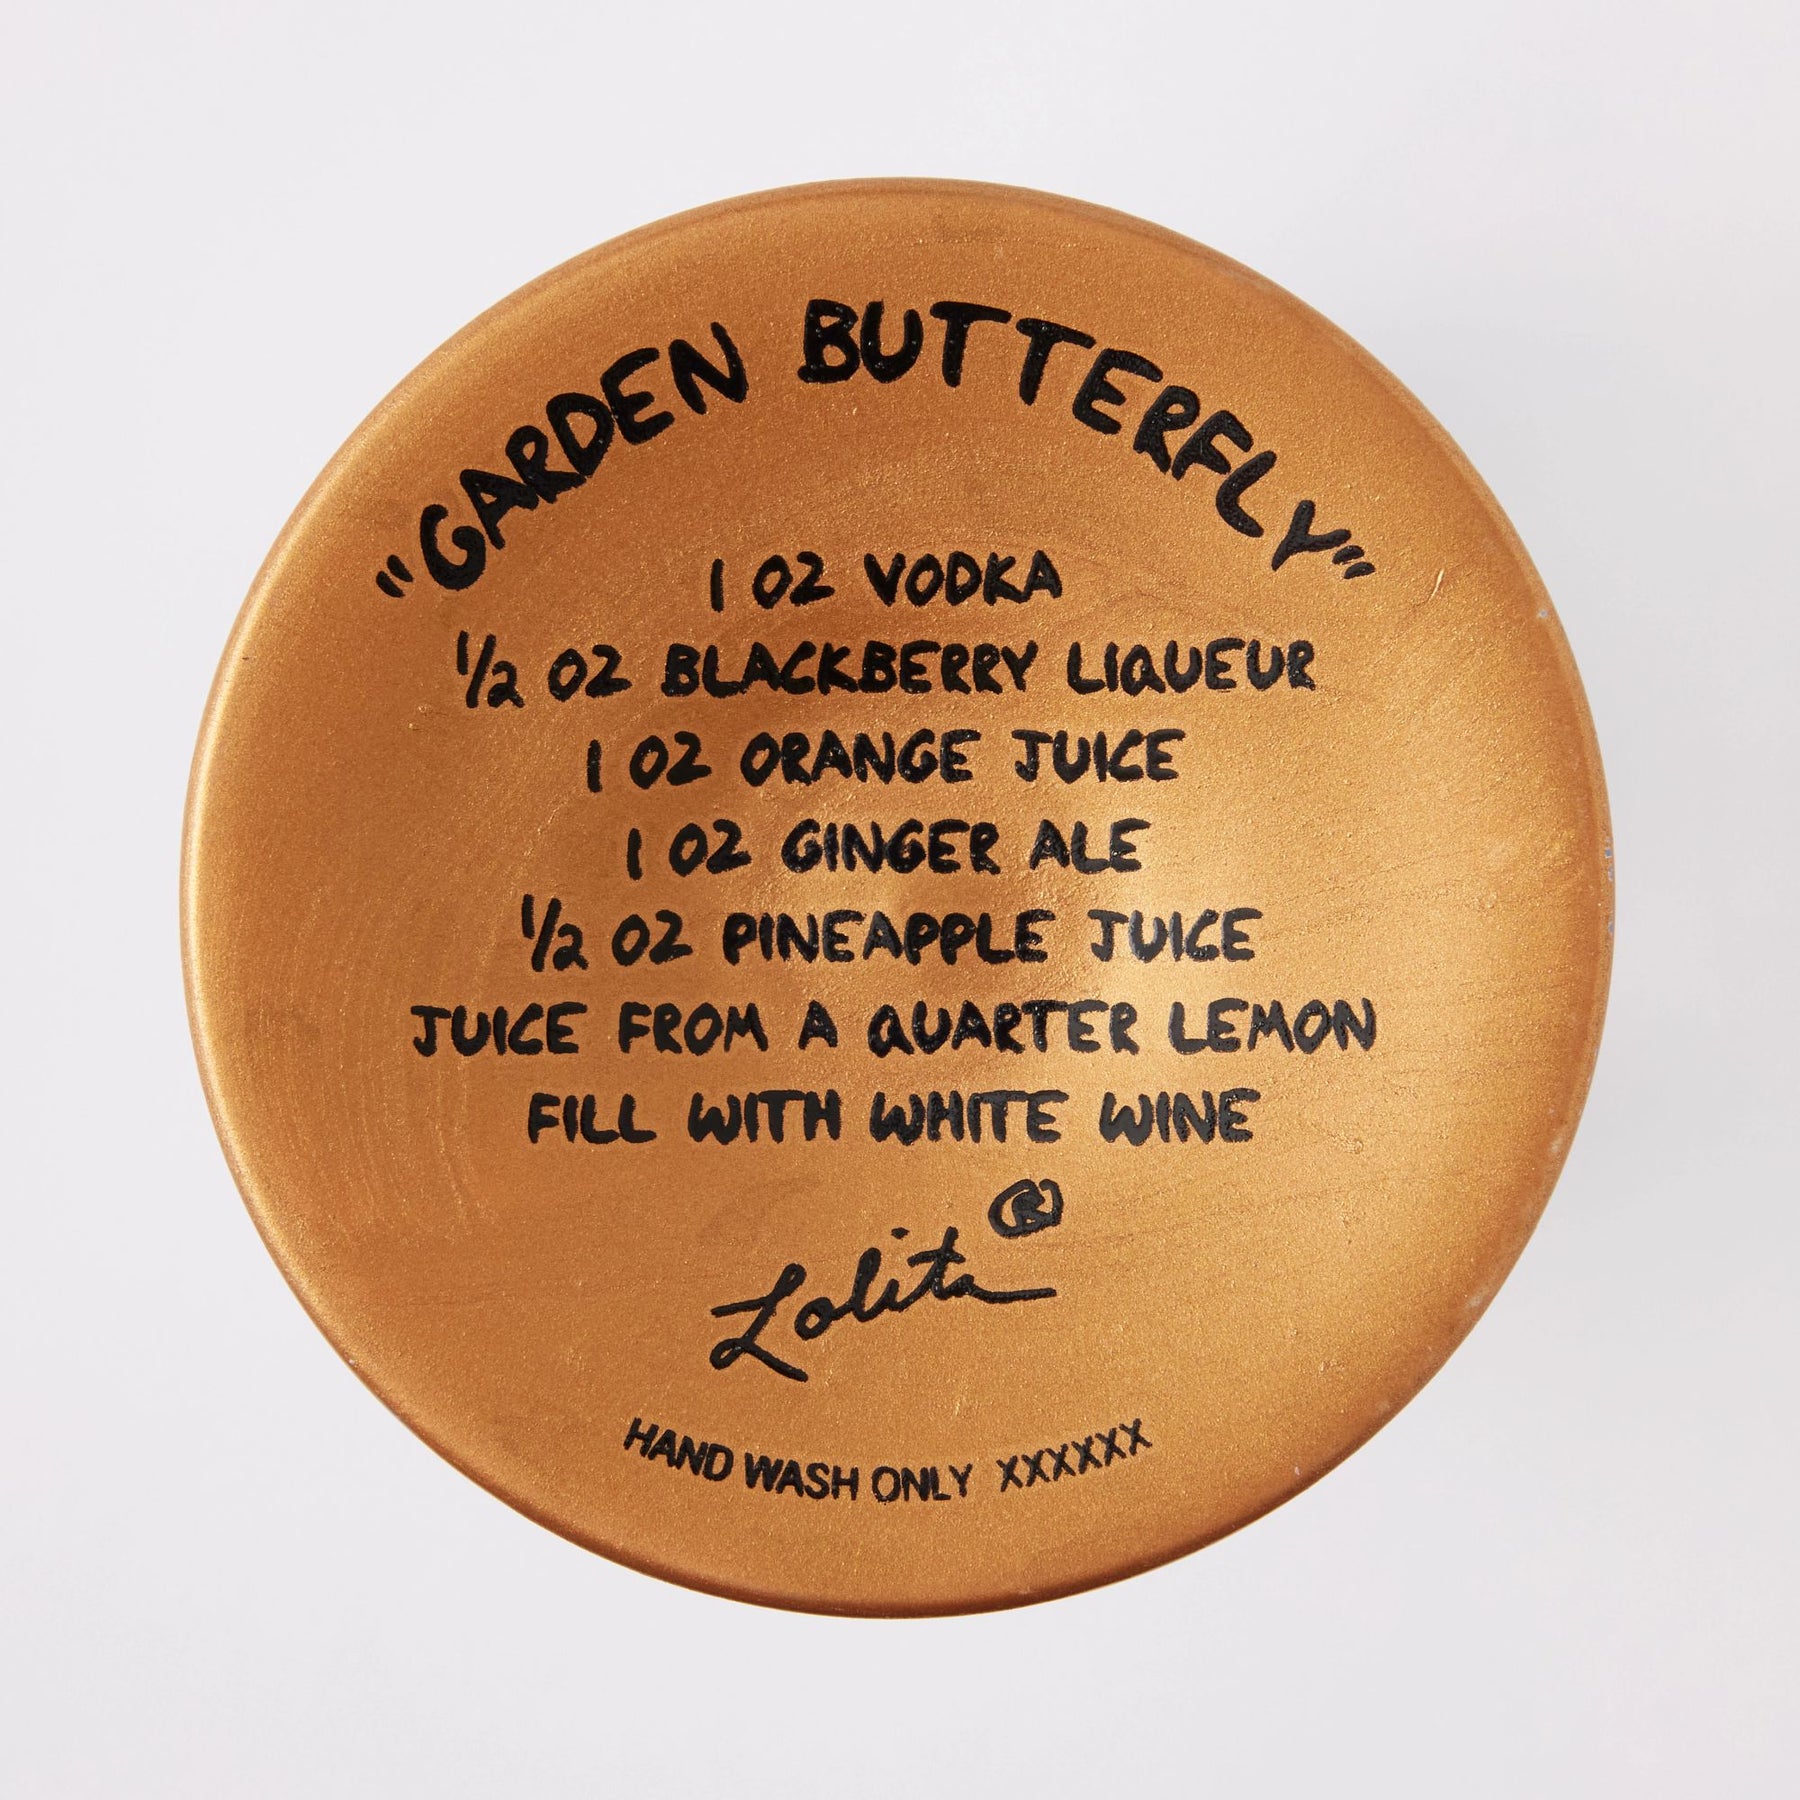 "GARDEN BUTTERFLY"
1 OZ VODKA
1/2 OZ BLACKBERRY LIQUEUR
1 OZ ORANGE JUICE
1 OZ GINGER ALE
1/2 OZ PINEAPPLE JUICE
JUICE FROM A QUARTER LEMON
FILL WITH WHITE WINE
Lolita ®
HAND WASH ONLY XXXXXX